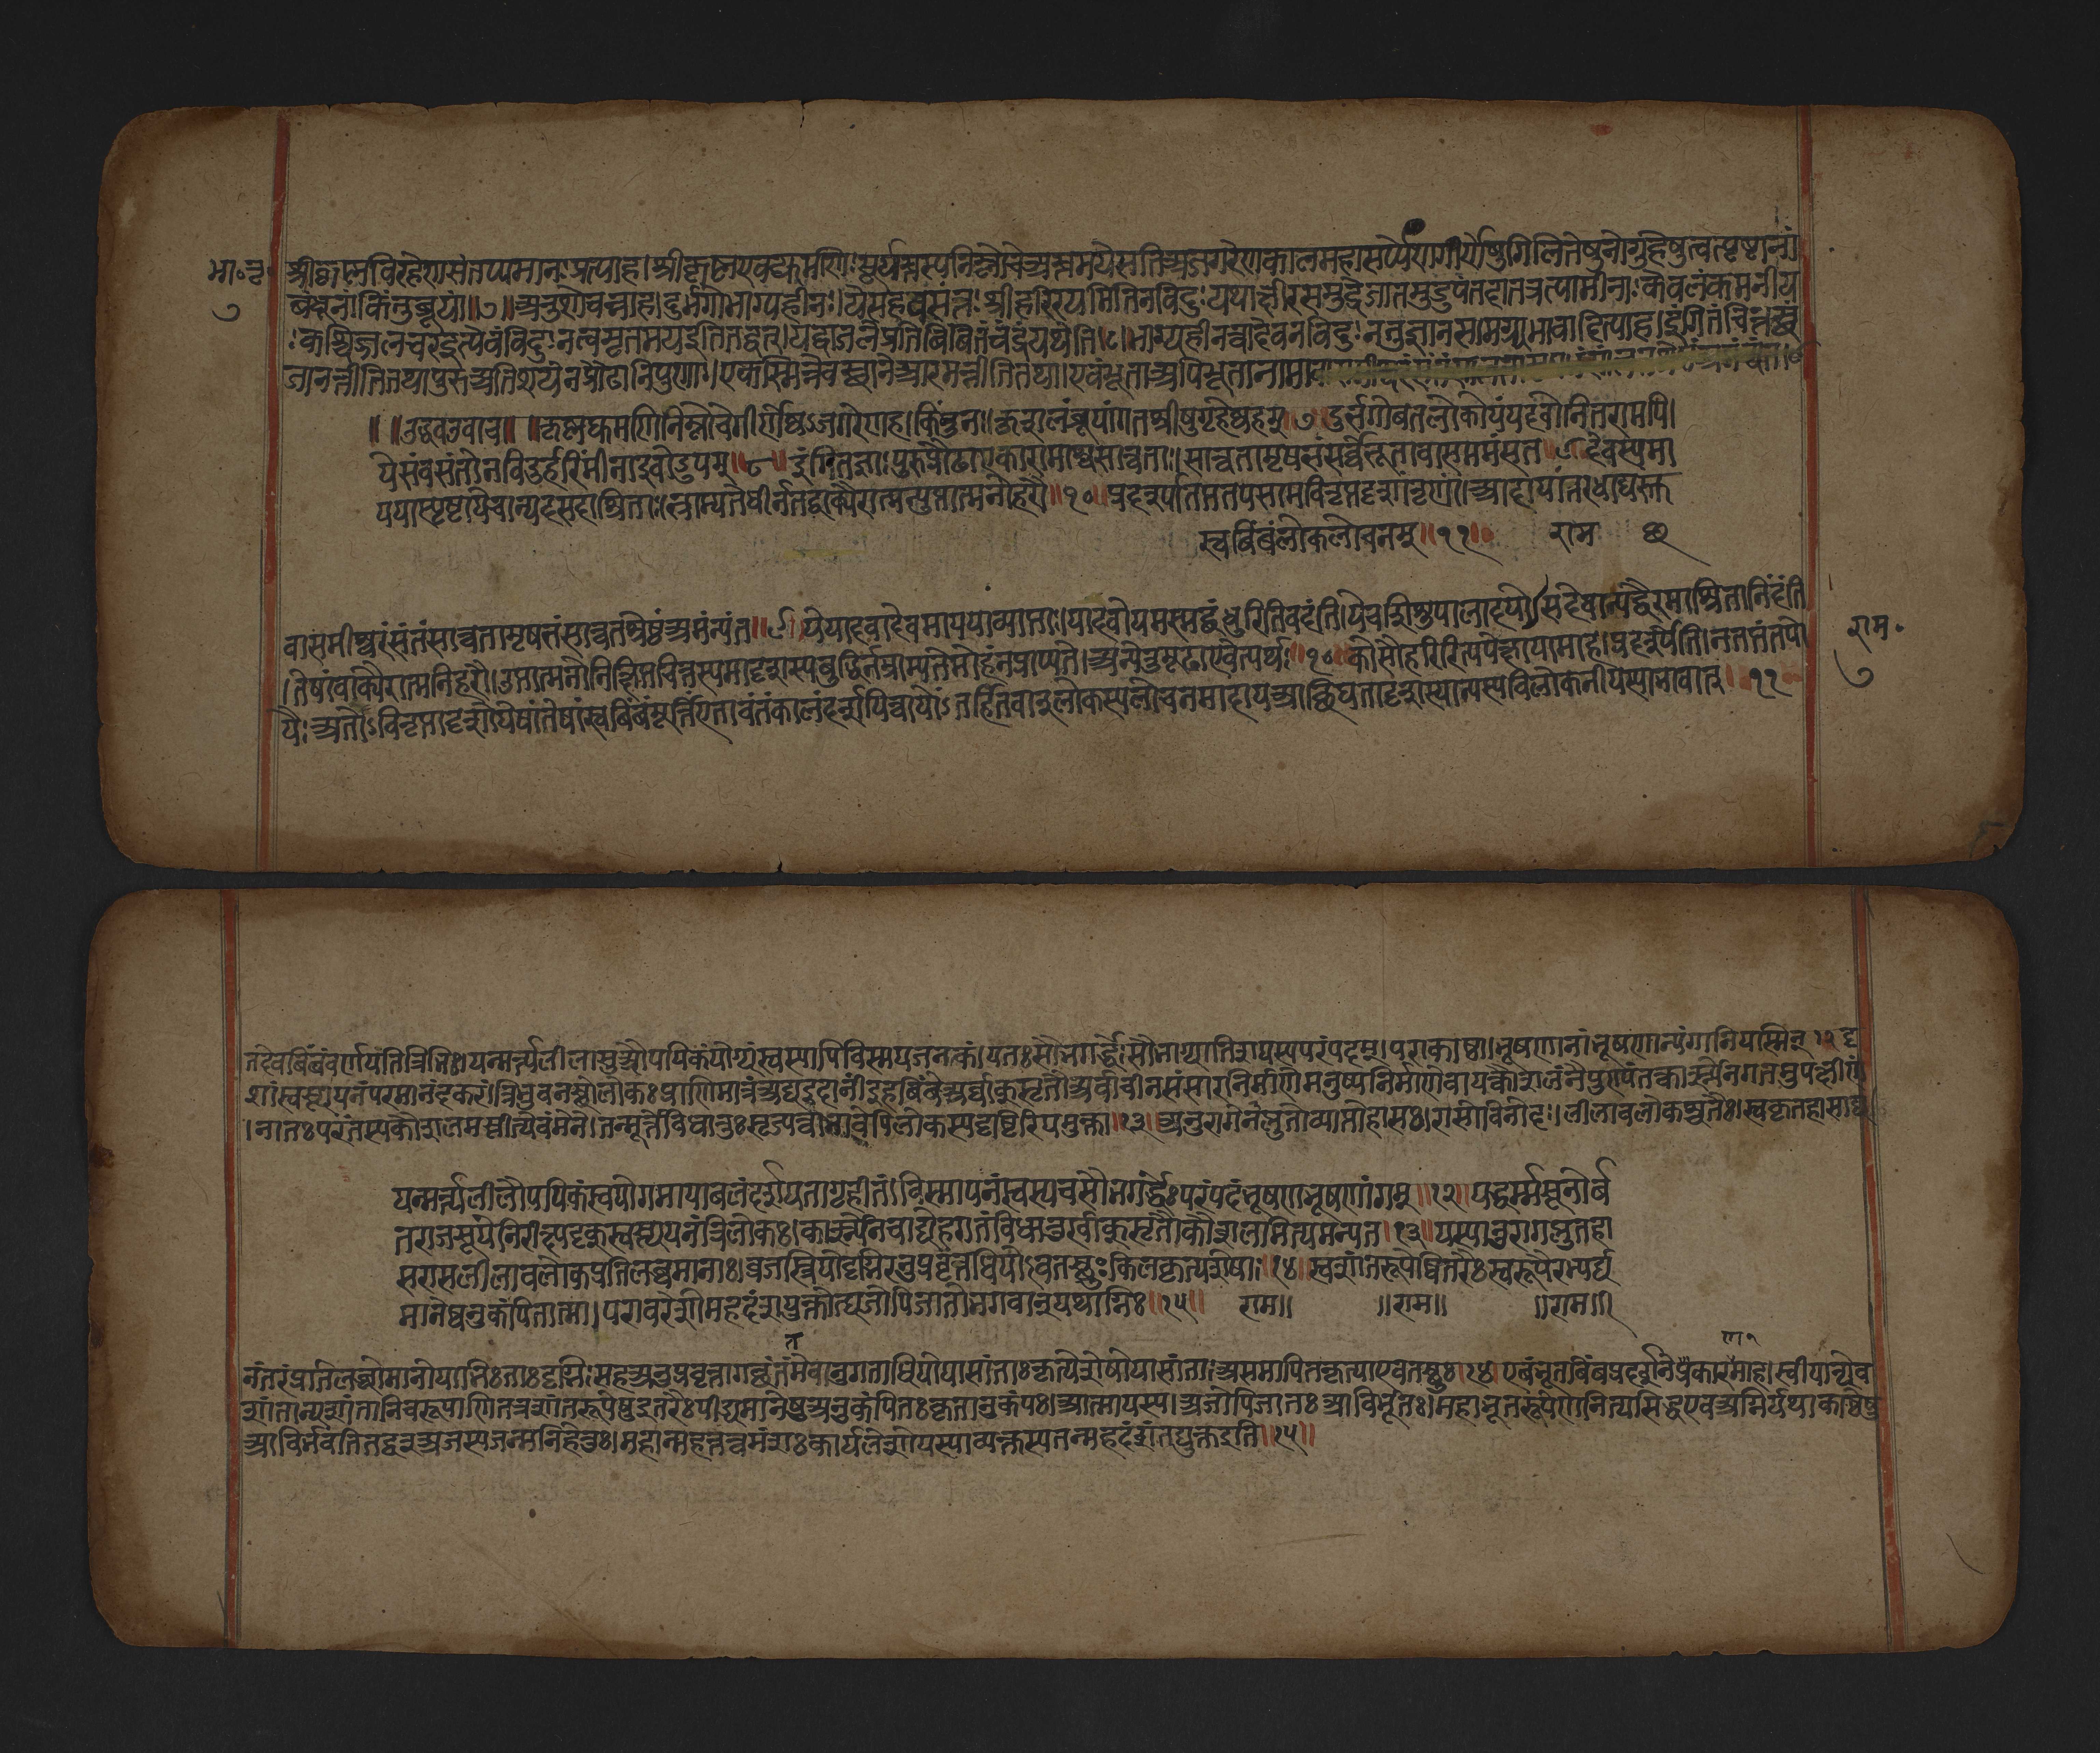 भा॰तृ॰
७
श्रीकृष्णविरहेणसंतप्यमानःप्रत्याह।श्रीकृष्णएवद्युमणिःसूर्यस्तस्यनिम्लोचेअस्तमयेसतिअजगरेणकालमहासर्प्पेणगीर्णेषुगिलितेषुनोगृहेषुत्वत्पृष्टानां
बंधूनांकिंनुब्रूयां॥७॥अनुशोचन्नाह।दुर्भगोभाग्यहीनः।येसहवसंतःश्रीहरिरयमितिनविदुःयथाक्षीरसमुद्रेजातमुडुपंतदातत्रत्यामीनाःकेवलंकमनीय
ःकश्चिज्जलचरइत्येवंविदुःनत्वमृतमयइतितद्वत्।यद्वाजलेप्रतिबिंबितंचंद्रंयथेति।८।भाग्यहीनत्वादेवनविदुःनतुज्ञानसामग्र्यभावादित्याह।इंगितंचित्तस्थं
जानन्तीतितथापुरुअतिशयेनप्रौढानिपुणाः।एकस्मिन्नेवस्थानेआरमन्तीतितथा।एवंभूताअपिभूतानामा
॥ ॥उद्धवउवाच॥ ॥कृष्णद्युमणिनिम्लोचेगीर्णेष्वऽजगरेणह।किंनुनः।कुशलंब्रूयांगतश्रीषुगृहेष्वहम्॥७॥दुर्भगोबतलोकोयंयदवोनितरामपि।
येसंवसंतोनविदुर्हरिंमीनाइवोडुपम्॥८॥इंगितज्ञाःपुरुप्रौढाएकारामाश्चसात्वताः।सात्वतामृषभंसर्व्वेभूतावासममंसत॥९॥देवस्यमा
ययास्पृष्टायेचान्यदसदाश्रिताः।भ्राम्यतेधीर्नतद्वाक्यैरात्मन्युप्तात्मनोहरौ॥१०॥प्रदर्श्यातप्ततपसामवितृप्तदृशांनृणां।आदायांतरधाद्यस्तु
स्वबिंबंलोकलोचनम्॥११॥ राम
वासमीश्वरंसंतंसात्वतामृषभंसात्वतश्रेष्ठंअमंन्यंत॥९॥येयादवादेवमाययाव्याप्ताः।यादवोयमस्मद्बंधुरितिवदंति।येचशिशुपालादयो
।तेषांवाक्यैरात्मनिहरौ।उप्तात्मनोनिक्षिप्तचित्तस्यमादृशस्यबुद्धिर्नभ्राम्यतेमोहंनप्राप्यते।अन्येतुमूढाएवेत्यर्थः॥१०॥कोसौहरिरित्यपेक्षायामाह।प्रदर्श्येति।नतप्तंतपो
यैः।अतोऽवितृप्तादृशोयेषांतेषांस्वबिंबंमूर्तिंएतावंतंकालंदर्शयित्वायोंऽतर्हितवान्लोकस्यलोचनमादायआच्छिद्यतादृशस्यान्यस्यविलोकनीयस्याभावात् ११
राम॰
७
तदेवबिंबंवर्णयंतित्रिभिः।यन्मर्त्यलीलासुऔपयिकंयोग्यंस्वस्यापिविस्मयजनकं।यतःसौभगर्द्धेःसौभाग्यातिशयस्यपरंपदम्।पराकाष्ठा।भूषणानांभूषणान्यंगानियस्मिन् १२ दृ
शांस्वस्त्ययनंपरमानंदकरं।त्रिभुवनस्थोलोकःप्राणिमात्रंअद्यइदानींइहबिंबेअर्वाक्सृतौअर्वाचीनसंसारनिर्माणेमनुष्यनिर्माणेवायत्कौशलंनैपुण्यंतत्कार्त्स्न्येनिगतमुपक्षीणं
।नातःपरंतस्यकौशलमस्तीत्येवंमेने।तन्मूर्त्तेर्विधातुः
यन्मर्त्यलीलौपयिकंस्वयोगमायाबलंदर्शयतागृहीतं।विस्मापनंस्वस्यचसौभगर्द्धेःपरंपदंभूषणभूषणांगम्॥१२॥यद्धर्म्मसूनोर्ब
तराजसूयेनिरीक्ष्यदृक्स्वस्त्ययनंत्रिलोकः।कार्त्स्न्येनचाद्येहगतंविधातुरर्वाक्सृतौकौशलमित्यमन्यत॥१३॥यस्यानुरागप्लुतहा
सरासलीलावलोकप्रतिलब्धमानाः।व्रजस्त्रियोदृग्भिरनुप्रवृत्तधियोऽवतस्थुःकिलकृत्यशेषाः॥१४॥स्वशांतरूपेष्वितरैःस्वरूपैरभ्यर्द्य
मानेष्वनुकंपितात्मा।परावरेशोमहदंशयुक्तोह्यजोपिजातोभगवान्यथाग्निः॥१५॥ राम॥ ॥राम॥ ॥राम॥
नंतरंप्रतिलब्धोमानोयाभिःताःदृग्भिःसहअनुप्रवृत्ताः
शांतान्यशांतानिचरूपाणितत्रशांतरूपेषुइतरैःपीड्यमानेषुअनुकंपितःकृतानुकंपः।आत्मायस्य।अजोपिजातःआविर्भूतः।महाभूतरूपेणनित्यसिद्धएवअग्निर्यथाकाष्ठेषु
आविर्भवतितद्वत्अजस्यजन्मनिहेतुः।महान्महत्तत्वमंशःकार्यलेशोयस्याव्यक्तस्यतन्महदंशंतद्युक्तइति॥१५॥